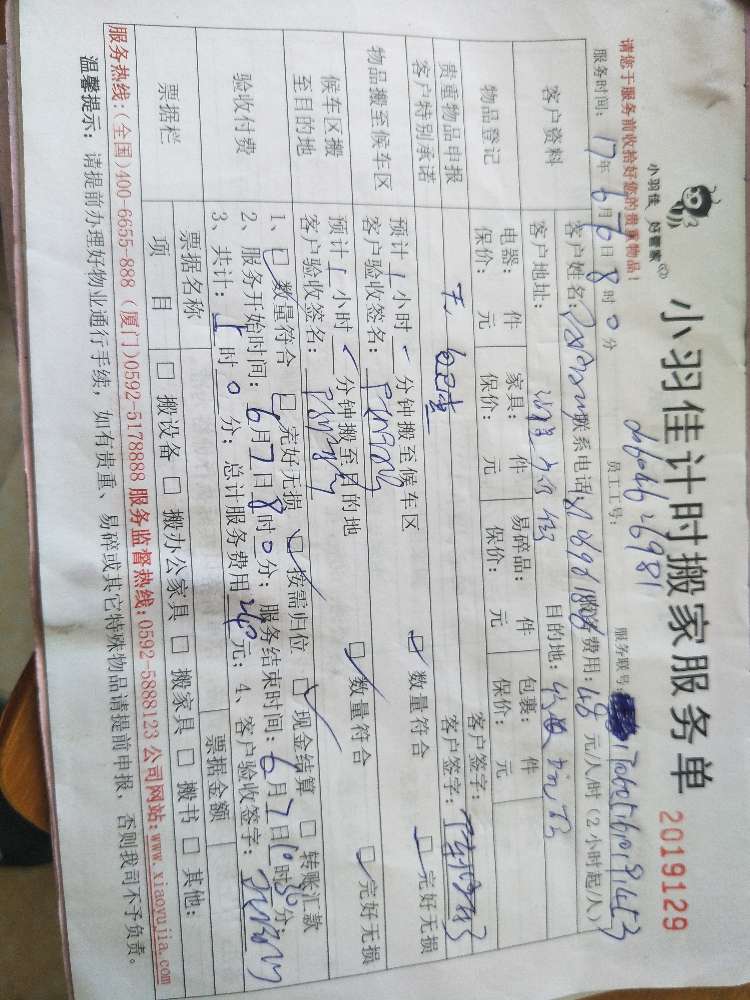 小羽佳 好管家
小羽佳计时搬家服务单
2019129
请您于服务前收拾好您的贵重物品！
员工工号：
服务联号：
服务时间：17年6月6日8时0分
客户资料
客户姓名：
联系电话：
服务费用：48元/人/时（2小时起/人）
客户地址：
目的地：
物品登记
电器： 件 家具： 件 易碎品： 件 包裹： 件
保价： 元 保价： 元 保价： 元 保价： 元
贵重物品申报
客户特别承诺
无
客户签字：
客户签字：
物品搬至候车区
预计1小时 分钟搬至候车区 数量符合 完好无损
客户验收签名：
候车区搬至目的地
预计1小时 分钟搬至目的地 数量符合 完好无损
客户验收签名：
验收付费
1、数量符合 完好无损 按需归位 现金结算 转账汇款
2、服务开始时间：6月7日8时0分；服务结束时间：6月7日10时30分；
3、共计： 时0分；总计服务费用240元；4、客户验收签字：
票据栏
票据名称 票据金额
项目 搬设备 搬办公家具 搬家具 搬书 其他：
服务热线：(全国)400-6655-888 (厦门)0592-5178888 服务监督热线:0592-5888123 公司网站:www.xiaoyujia.com
温馨提示：请提前办理好物业通行手续，如有贵重、易碎或其它特殊物品请提前申报，否则我司不予负责。